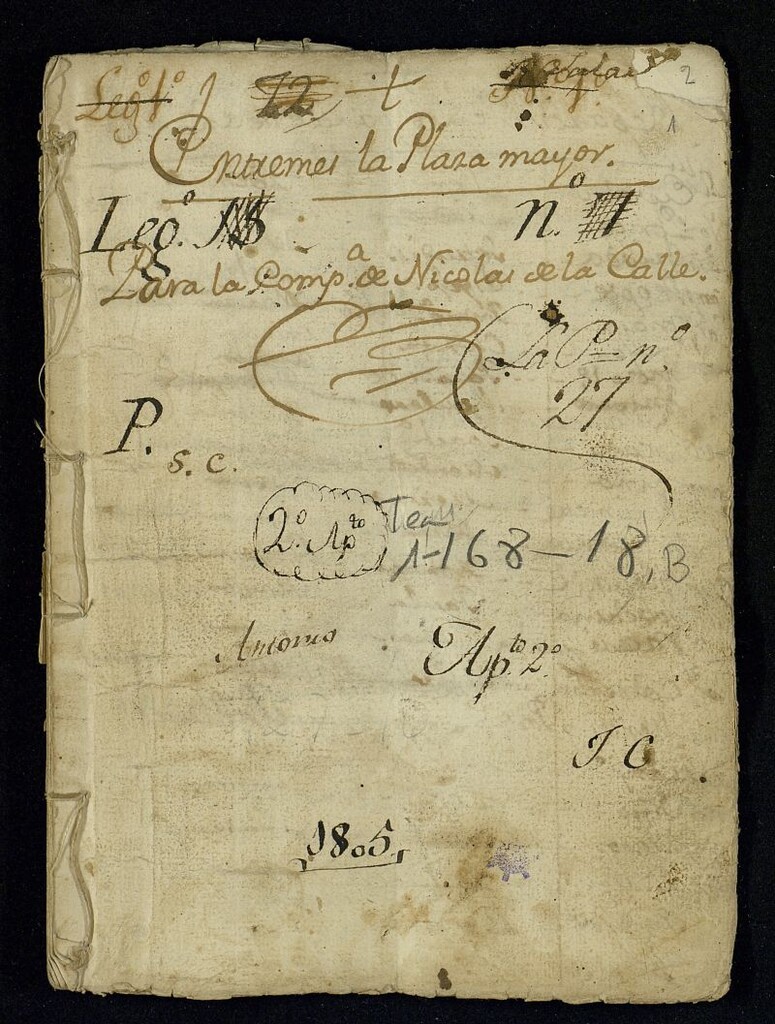 Leg.º 1º
12
2
1
Entremes la Plaza mayor.
Leg.º
n.º
Para la Comp.ª de Nicolas de la Calle.
La P n.º
27
P.
s. c.
2.º Ap.to
Tea
1-168-18, B
Antonio
Ap.to 2.º
J C
1805